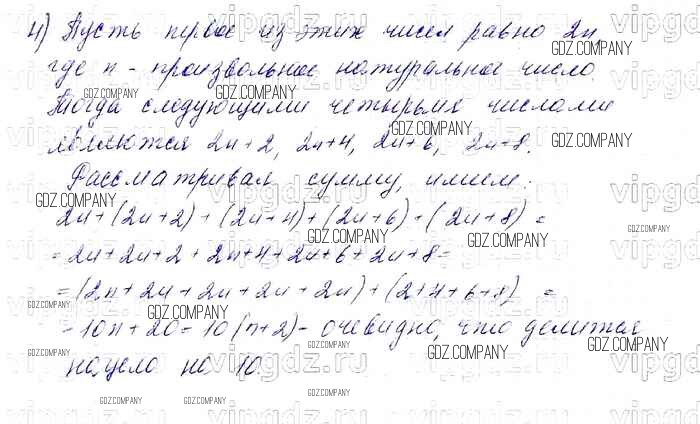 4) Пусть первое из этих чисел равно 2n
где n - произвольное натуральное число.
Тогда следующими четырьмя числами
являются 2n+2, 2n+4, 2n+6, 2n+8.
Рассматривая сумму, имеем:
2n+(2n+2)+(2n+4)+(2n+6)+(2n+8) =
= 2n+2n+2+2n+4+2n+6+2n+8=
=(2n+2n+2n+2n+2n)+(2+4+6+8) =
=10n+20=10(n+2)- очевидно, что делится
нацело на 10.